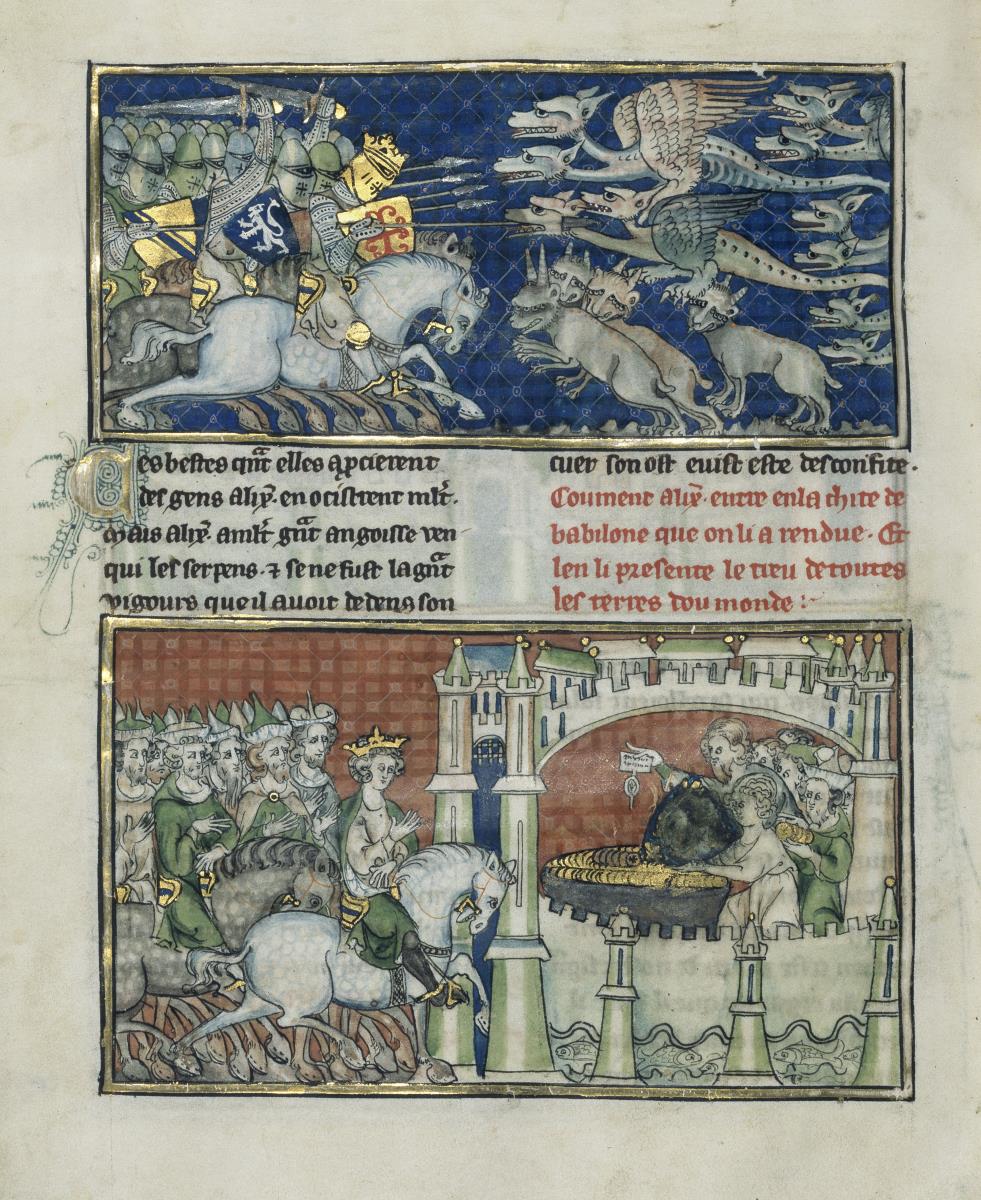 Ces bestes qñt elles apcierent
des gens alix̃. en ocistrent mlt̃.
Mais alix̃. a mlt̃ gñt angoisse ven
qui les serpens. ⁊ se ne fust la gñt
vigours que il avoit dedens son
cuer son ost euist este desconfite.
Coument alix̃. entre en la chite de
babilone que on li a rendue. Et
len li presente le treu de toutes
les terres dou monde :